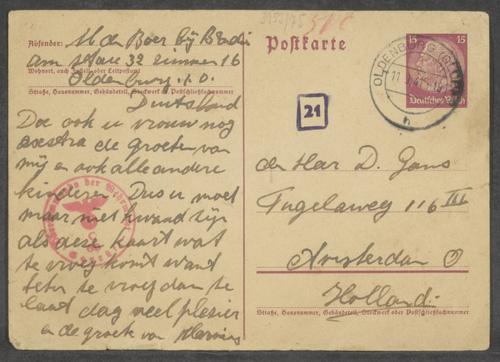 Absender: M de Boer bij Bradi
am 32 zimmer 16
Wohnort, auch Zustell- oder Leitpostamt
Oldenburg i.O.
Straße, Hausnummer, Gebäudeteil, Stockwerk od. Postschließfachnummer
Duitsland
Doe ook u vrouw nog
de groeten van
mij en ook alle andere
kinderen. Dus u moet
maar niet kwaad zijn
als deze kaart wat
te vroeg komt want
beter te vroeg dan te
laat dag veel plezier
en de groeten van Marinus
Postkarte
OLDENBURG (OLDB)
h
15 15
Deutsches Reich
21
den Heer D. Gans
Tugelaweg 116 III
Amsterdam O
Holland
Straße, Hausnummer, Gebäudeteil, Stockwerk oder Postschließfachnummer